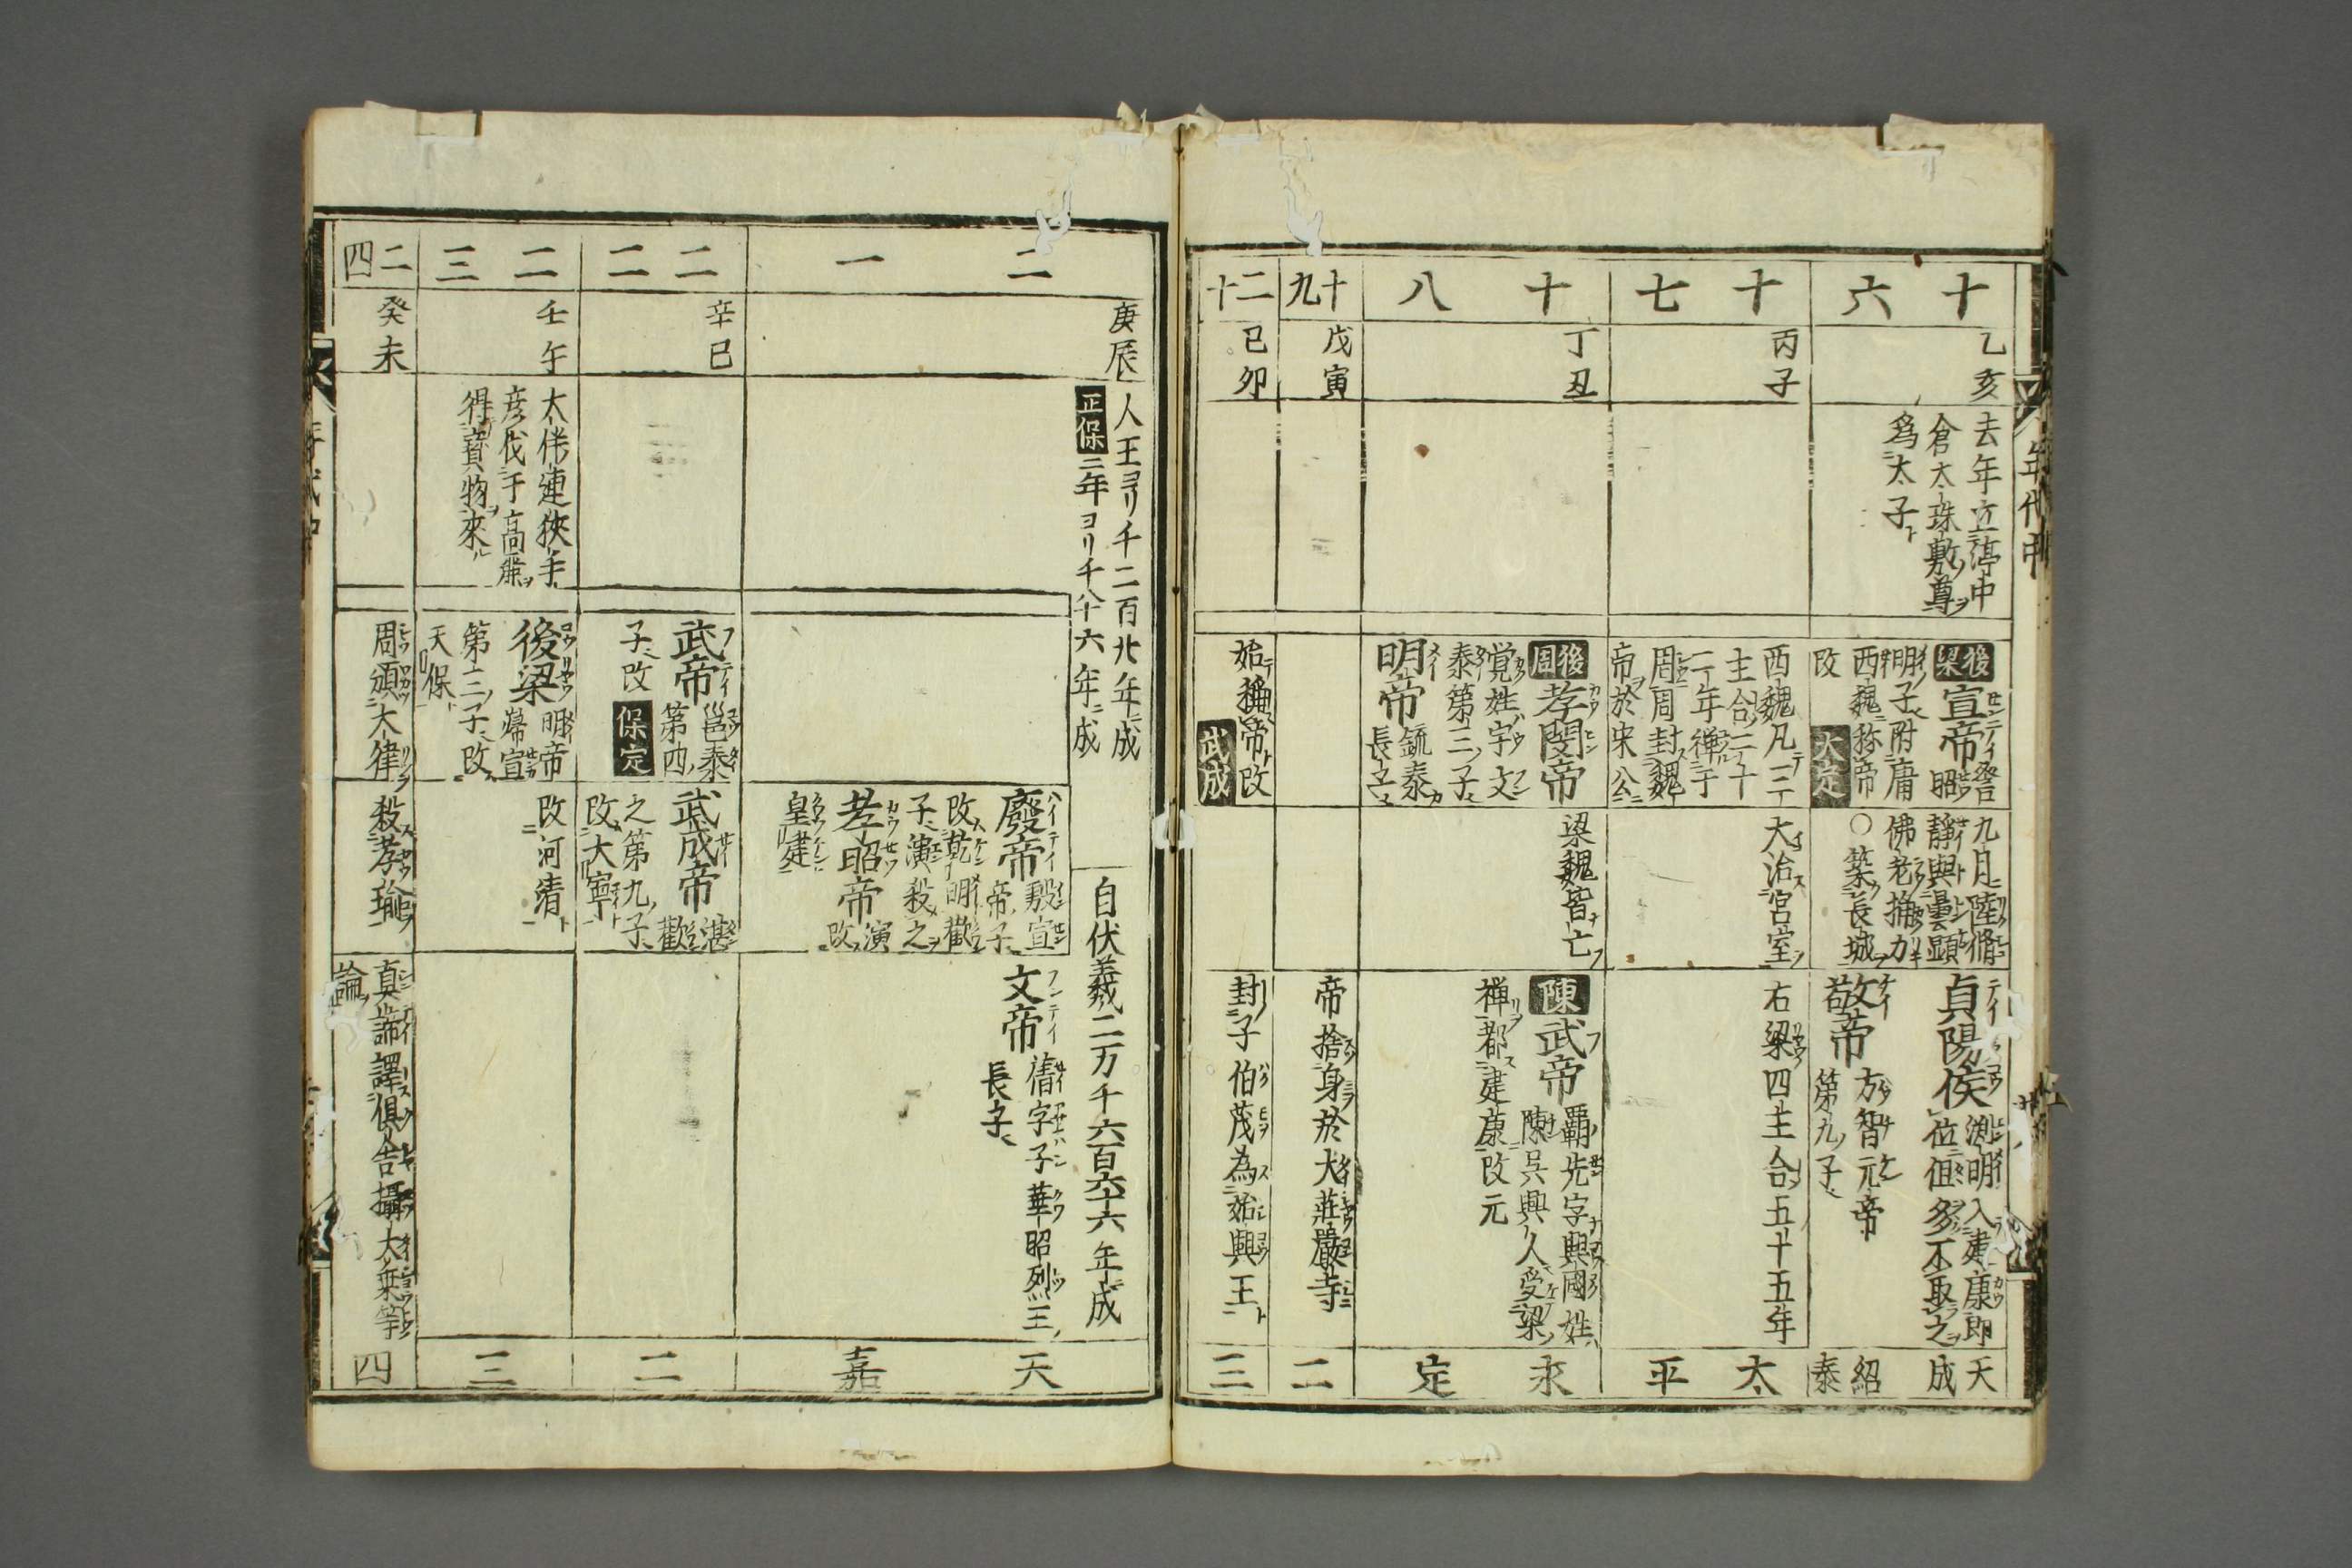 年代中
十六
乙亥
去年立渟中
倉太珠敷尊ヲ
爲太子ト
後梁
宣帝
詧昭
明子附庸
西魏称帝
改
大定
九月陸脩
靜與曇顕
佛老捔力
○築長城
貞陽侯
渕明入建康即
位但多不取之
敬帝
方智元帝
第九ノ子
天成
紹泰
十七
丙子
西魏凡三
主合二十
二年禅于
周周封魏
帝於宋公
大治宮室
右梁四主合五十五年
太平
十八
丁丑
後周
孝閔帝
覚姓宇文
泰第三ノ子
明帝
毓泰
長子
梁魏皆亡
陳
武帝
覇先字興國姓
陳呉興人受梁
禅都建康改元
永定
十九
戊寅
帝捨身於大荘嚴寺
二
二十
已卯
始稱帝改
武成
封子伯茂為始興王
三
二一
庚辰
人王ヨリ千二百廿年成
正保
二年ヨリ千八十六年成
自伏羲二万千六百六十六年成
廢帝
殷宣
帝子
改乾明歡
子演殺之
孝昭帝
演
改
皇建
文帝
蒨字子華昭烈王
長子
天嘉
二二
辛巳
武帝
邕泰
第四
子改
保定
武成帝
湛
歡
之第九ノ子
改大寧
二
二三
壬午
太伴連狹手
彦伐于高麗
得寳物來
後梁
明帝
巋宣
第三ノ子改
天保
改河清
三
二四
癸未
周頒大律
殺孝瑜
真諦譯倶舎攝大乗等
論
四